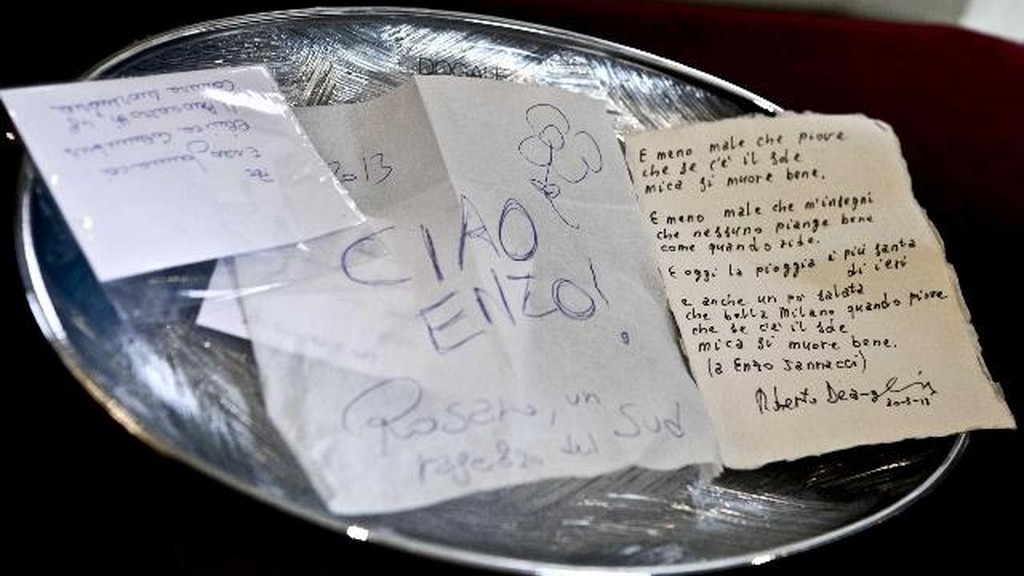 DOGALE
2013
CIAO
ENZO!
Rosario, un
ragazzo del Sud
E meno male che piove
che se c'è il sole
mica si muore bene.
E meno male che m'insegni
che nessuno piange bene
come quando ride.
E oggi la pioggia è più santa
di ieri
e anche un po' salata
che bella Milano quando piove
che se c'è il sole
mica si muore bene.
(a Enzo Jannacci)
Roberto
30-3-13
Enzo Jannacci